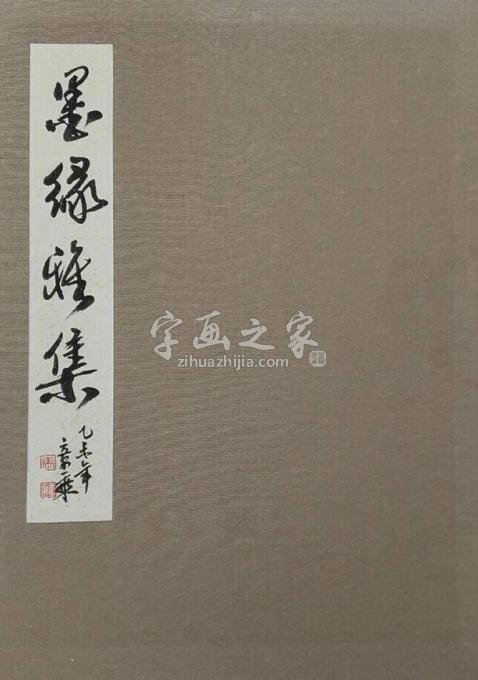 墨缘雅集
乙未年
字画之家
zihuazhijia.com